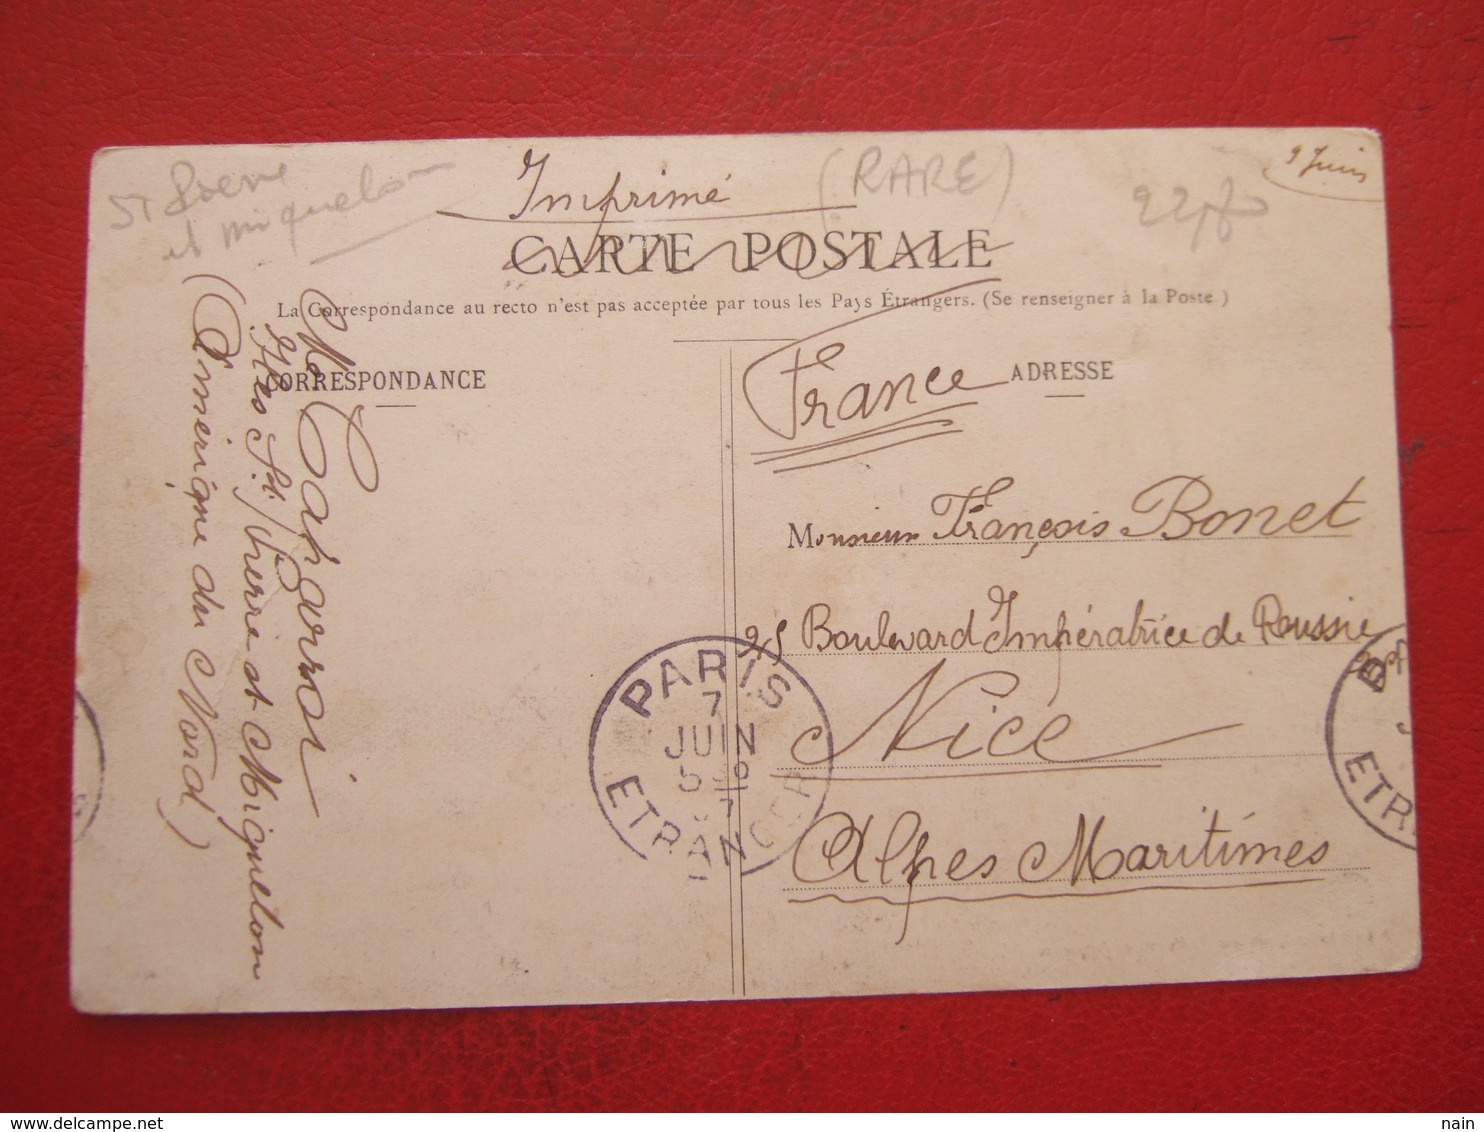 St Pierre
et Miquelon
Imprimé
(RARE)
9 Juin
CARTE POSTALE
La Correspondance au recto n'est pas acceptée par tous les Pays Étrangers. (Se renseigner à la Poste)
CORRESPONDANCE
ADRESSE
France
Monsieur François Bonet
25 Boulevard Impératrice de Roussie
Nice
Alpes Maritimes
Iles St. Pierre et Miquelon
(Amérique du Nord)
PARIS
7
JUIN
ETRANGER
ETR
nain delcampe.net